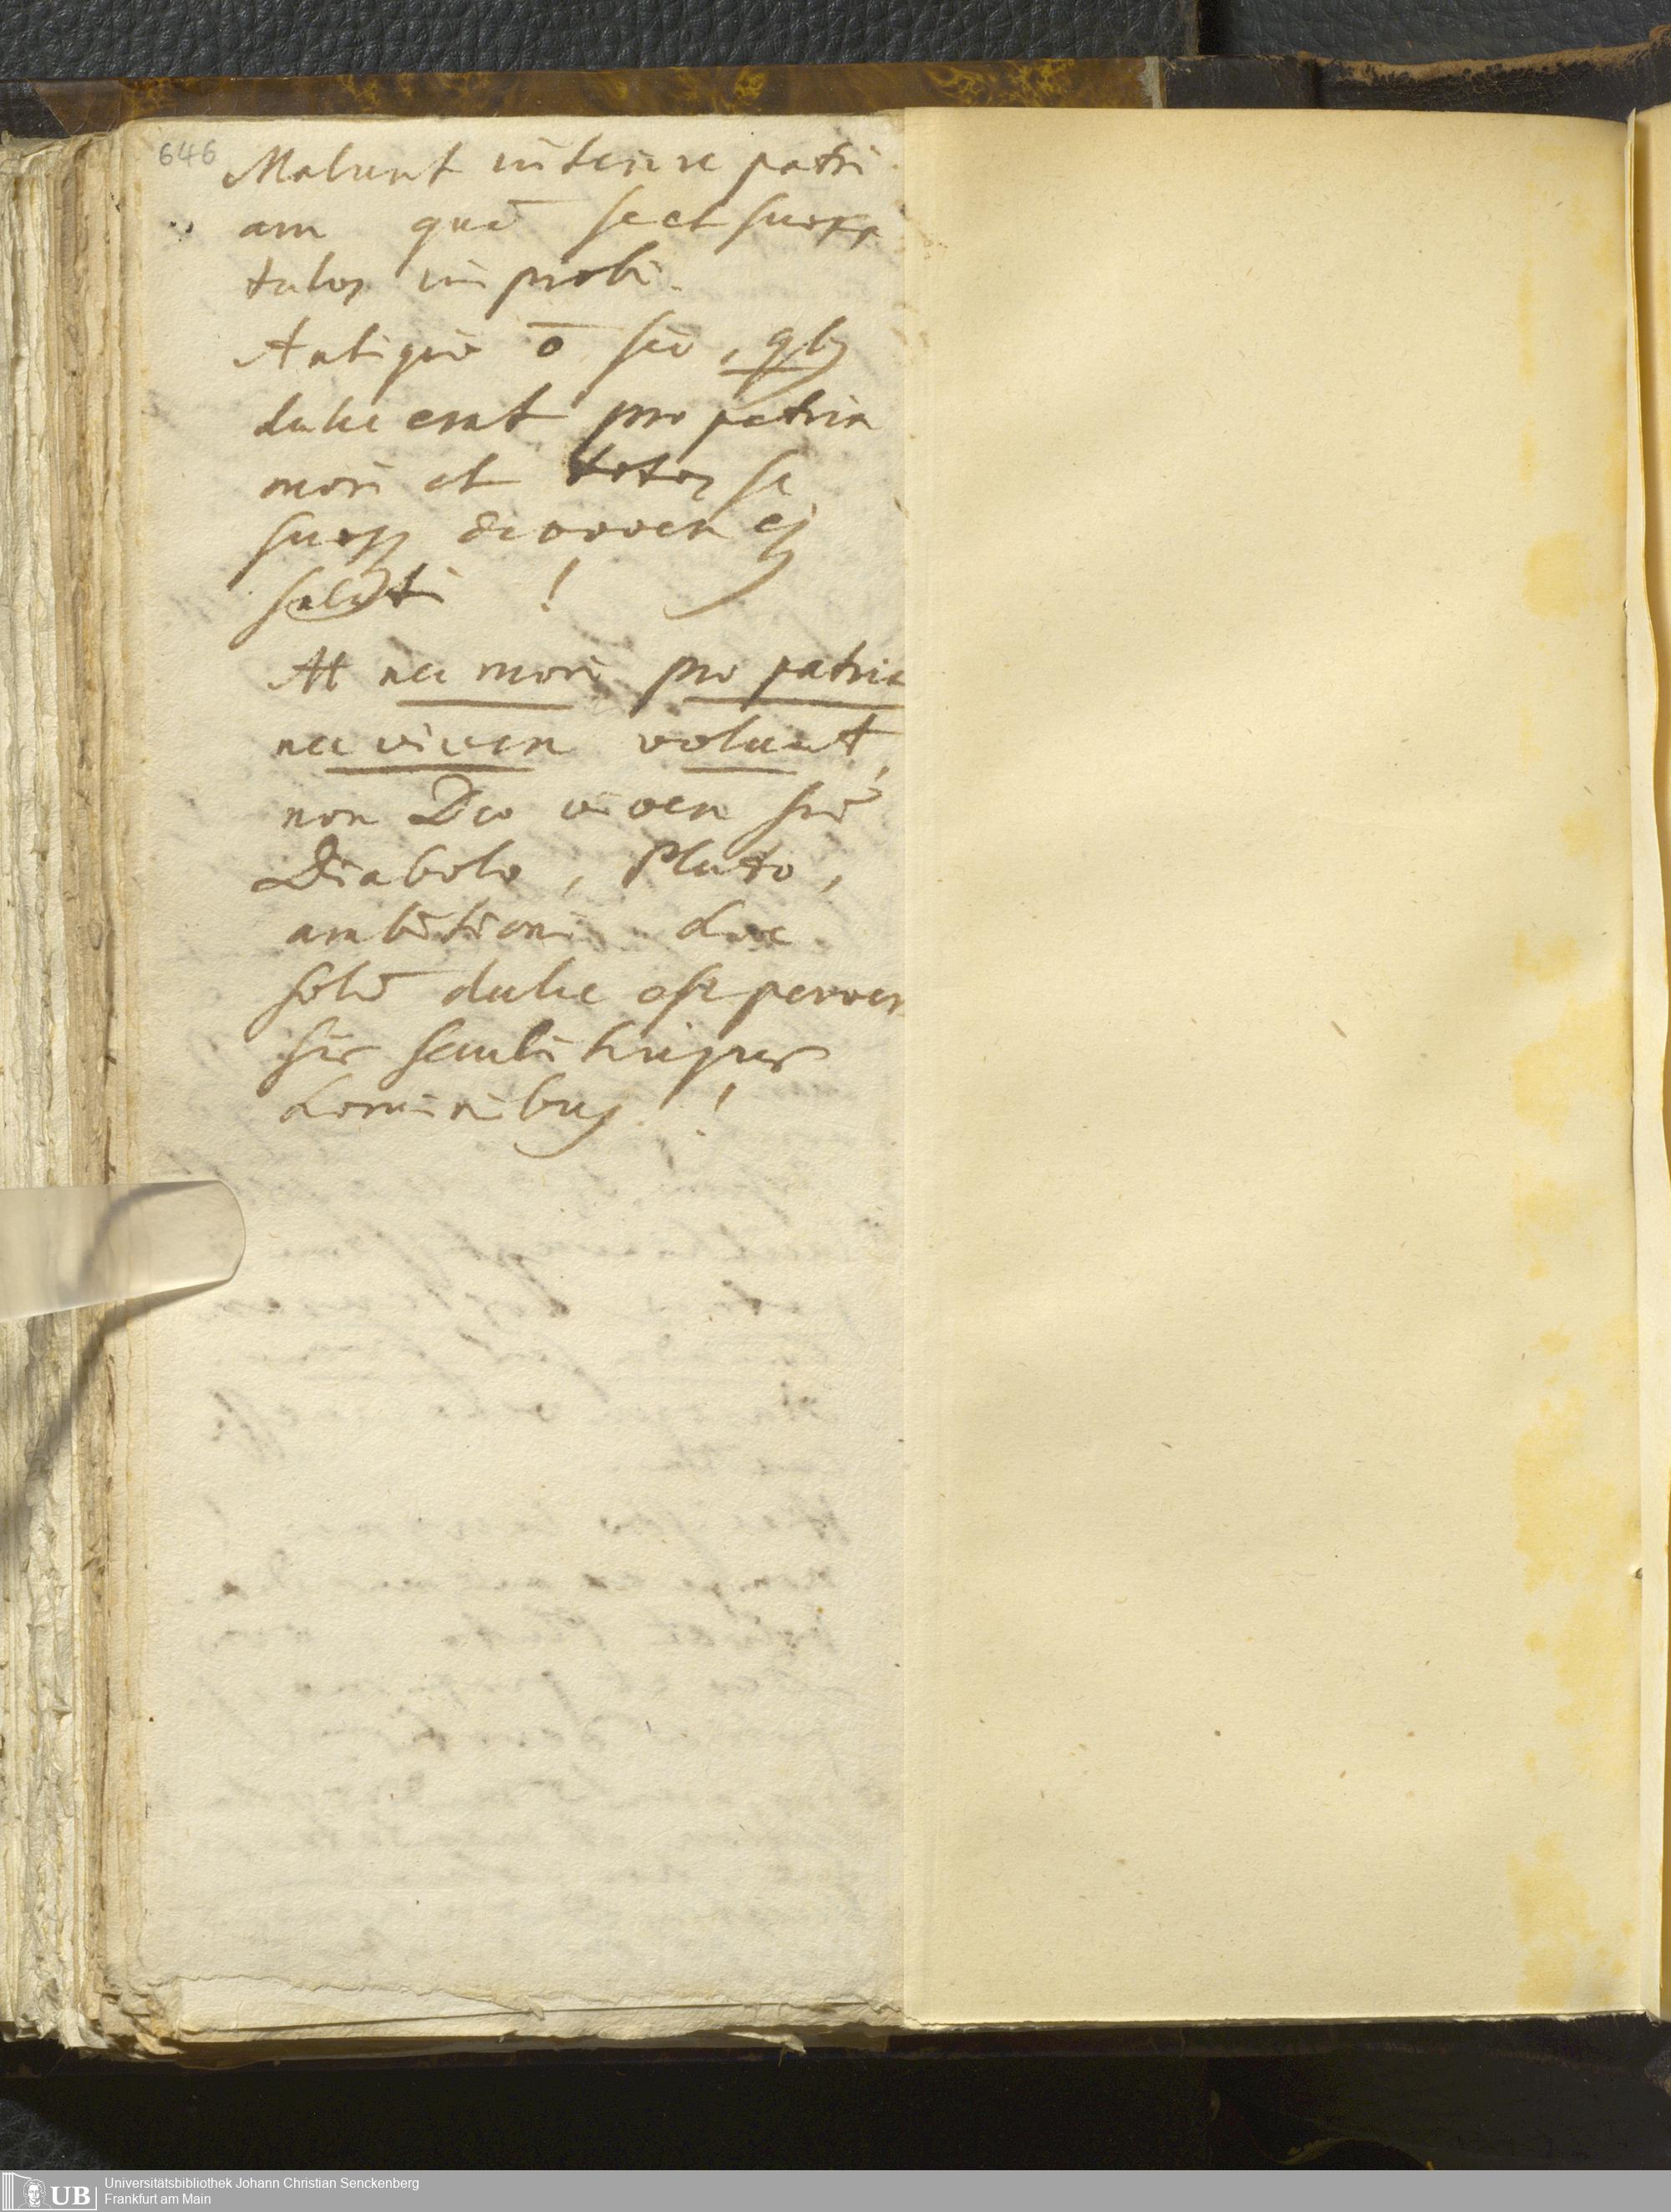 646
Malunt interire patri
am quā se et suos
tales improbi.
Antiquis ō sic, qbꝯ
dulce erat pro patria
mori et totos se
suosqꝫ devovere ej
saluti !
At nec mori pro patria
nec vivere volunt,
non Deo vivere sed
Diabolo, Pluto,
ambitioni hoc
solū dulce est perver
sis
hominibus !
UB Universitätsbibliothek Johann Christian Senckenberg
Frankfurt am Main